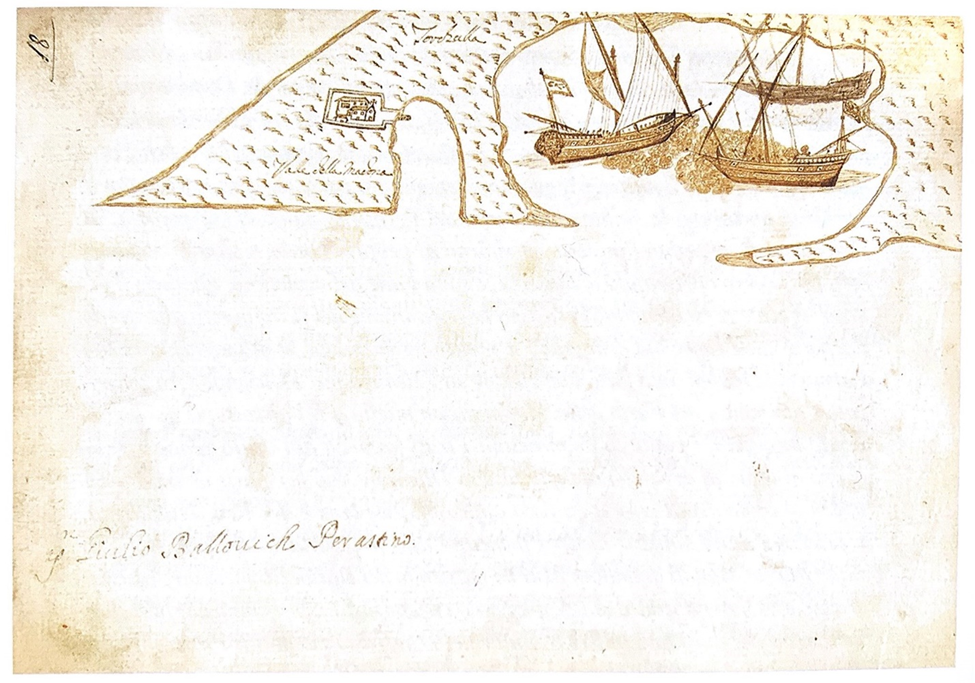 18
Torchulla
Valle della Madona
Giulio Ballovich Perastino.